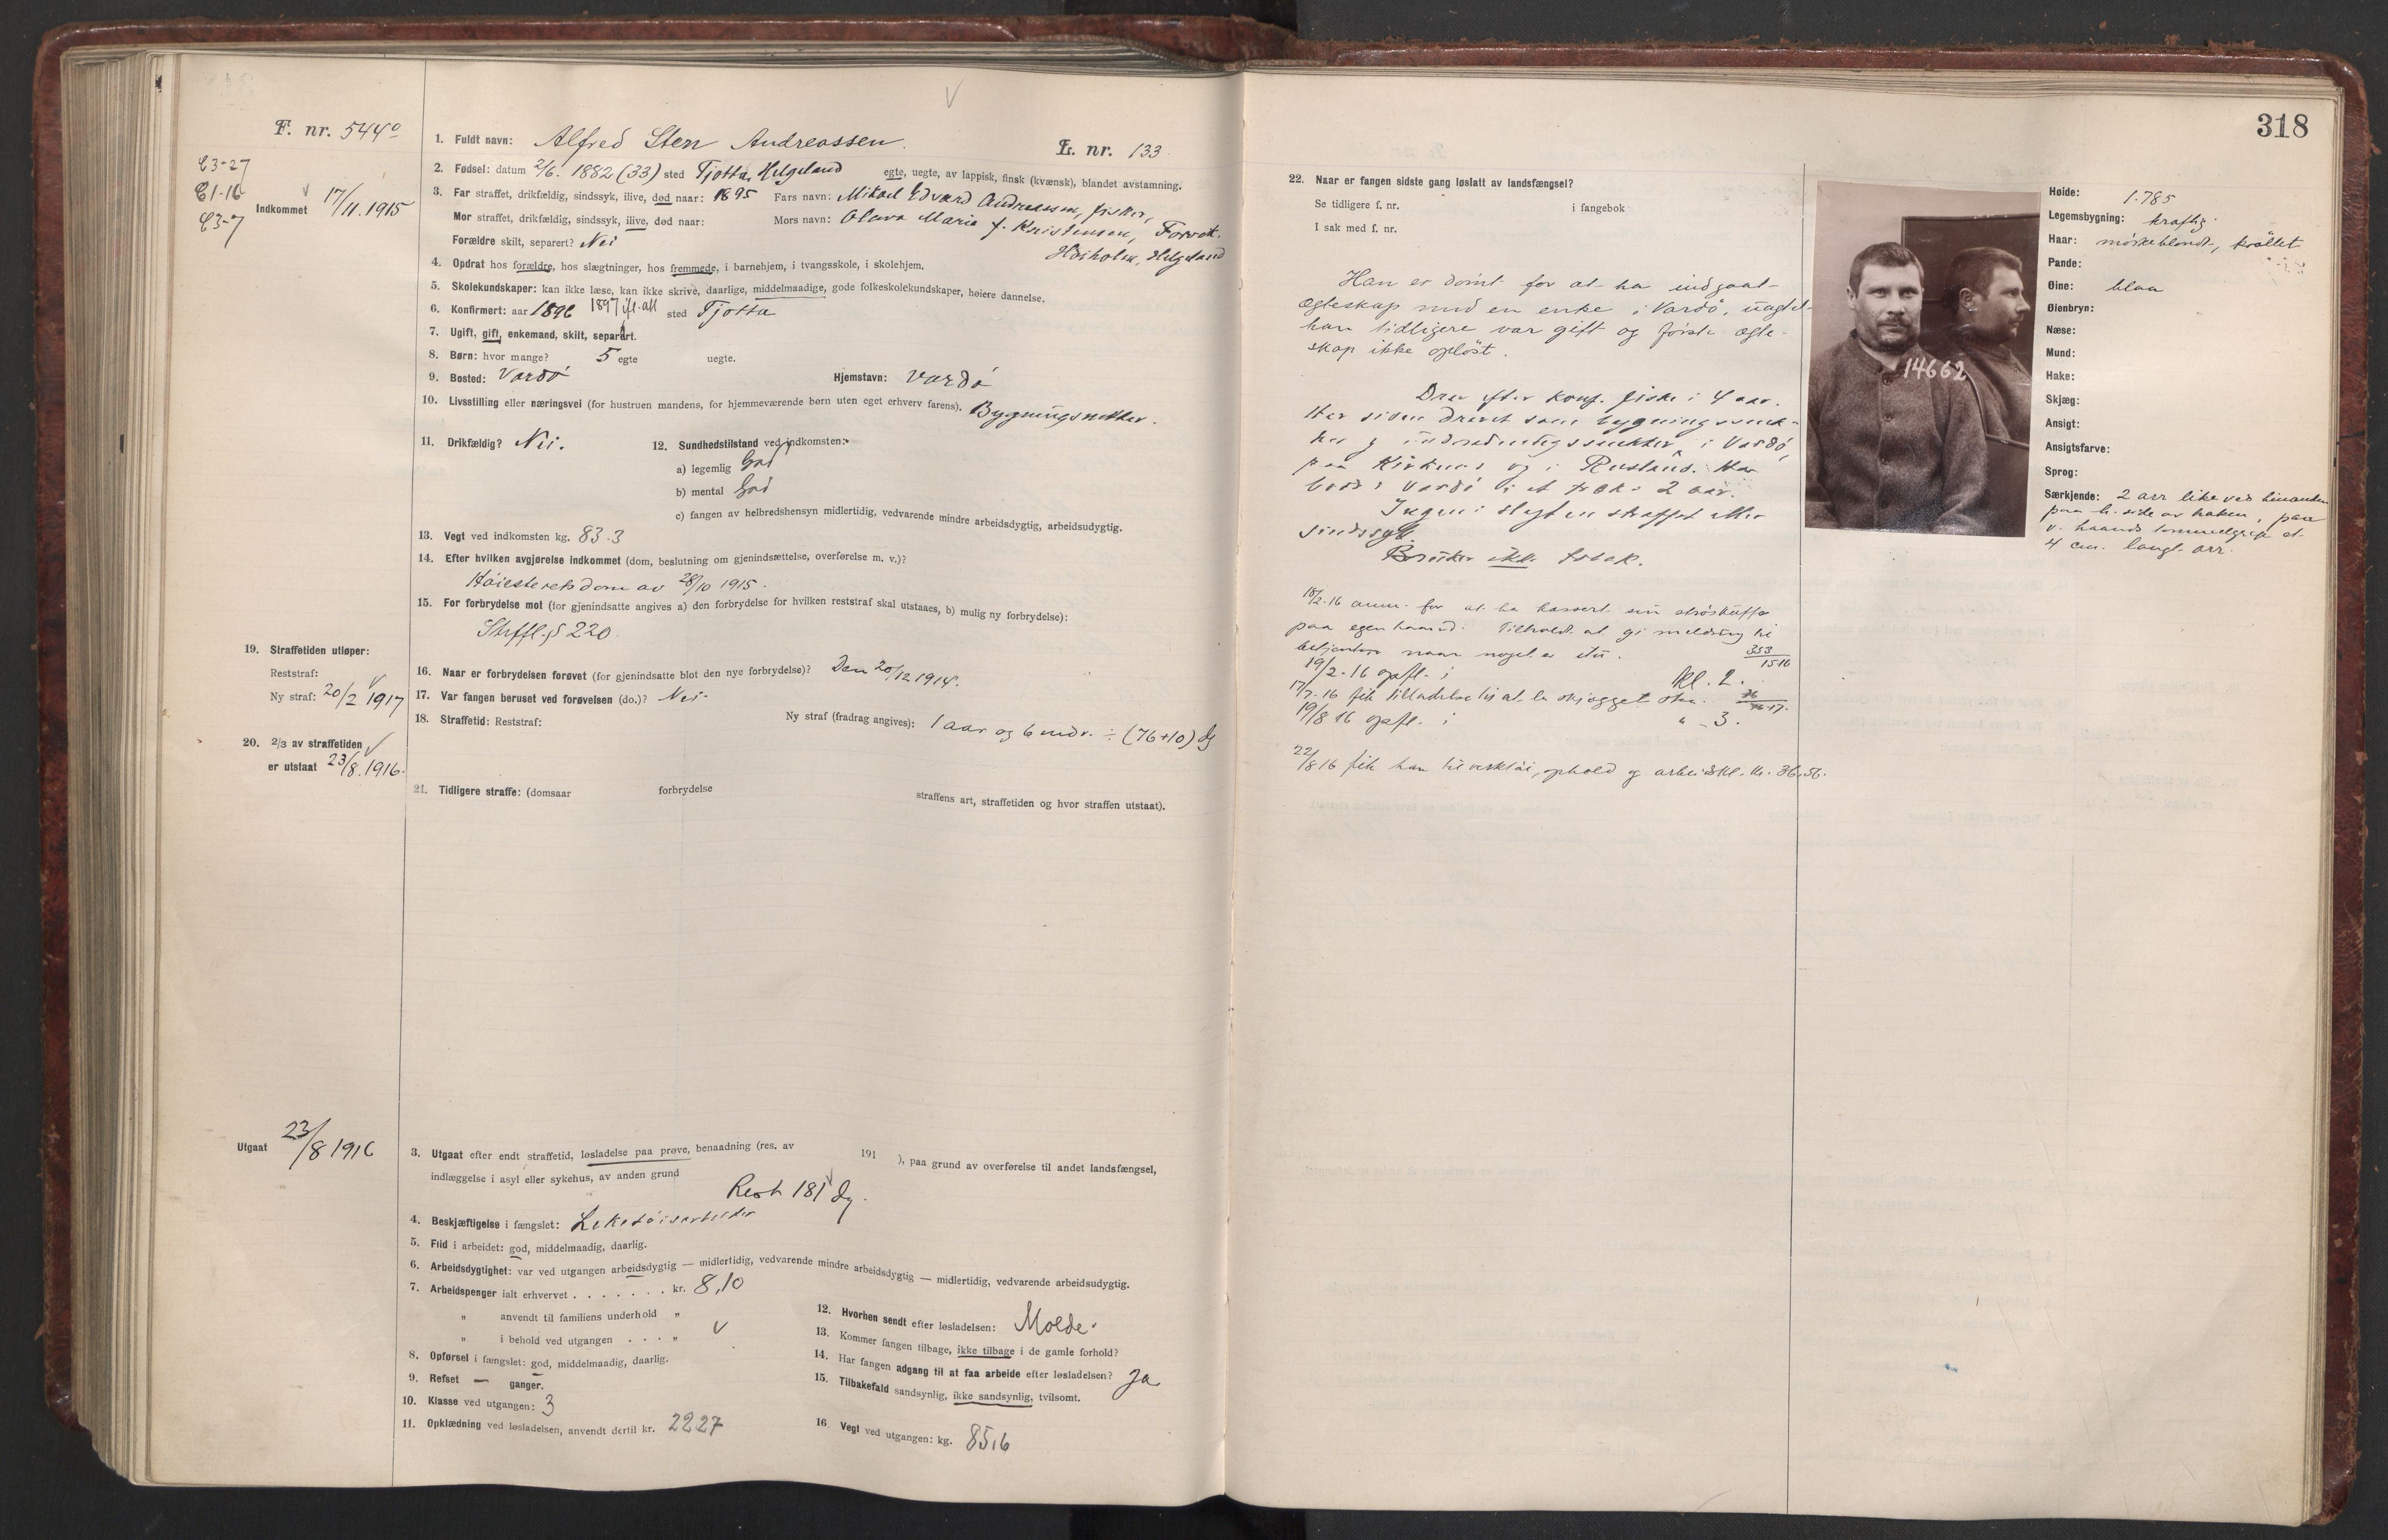 F. nr. 5440
C3-27
C1-16
C3-7
Indkommet 17/11.1915
1. Fuldt navn: Alfred Sten Andreassen.
L. nr. 133
2. Fødsel: datum 2/6. 1882 (33) sted Tjøtta, Helgeland egte, uegte, av lappisk, finsk (kvænsk), blandet avstamning.
3. Far straffet, drikfældig, sindssyk, ilive, død naar: 1895 Fars navn: Mikael Edvard Andreassen, fisker,
Mor straffet, drikfældig, sindssyk, ilive, død naar: Mors navn: Olava Maria f. Kristensen, Forvik.
Forældre skilt, separert? Nei
Høiholm, Helgeland
4. Opdrat hos forældre, hos slægtninger, hos fremmede, i barnehjem, i tvangsskole, i skolehjem.
5. Skolekundskaper: kan ikke læse, kan ikke skrive, daarlige, middelmaadige, gode folkeskolekundskaper, høiere dannelse.
6. Konfirmert: aar 1896 1897 ifl. att sted Tjøtta
7. Ugift, gift, enkemand, skilt, separert.
8. Børn: hvor mange? 5 egte uegte.
9. Bosted: Vardø Hjemstavn: Vardø
10. Livsstilling eller næringsvei (for hustruen mandens, for hjemmeværende børn uten eget erhverv farens). Bygningssnekker.
11. Drikfældig? Nei. 12. Sundhedstilstand ved indkomsten:
a) legemlig God
b) mental God
c) fangen av helbredshensyn midlertidig, vedvarende mindre arbeidsdygtig, arbeidsudygtig.
13. Vegt ved indkomsten kg. 83.3
14. Efter hvilken avgjørelse indkommet (dom, beslutning om gjenindsættelse, overførelse m. v.)?
Høiesteretsdom av 28/10 1915.
15. For forbrydelse mot (for gjenindsatte angives a) den forbrydelse for hvilken reststraf skal utstaaes, b) mulig ny forbrydelse):
Strffl. § 220.
19. Straffetiden utløper:
Reststraf:
Ny straf: 20/2 1917
16. Naar er forbrydelsen forøvet (for gjenindsatte blot den nye forbrydelse)? Den 20/12 1914.
17. Var fangen beruset ved forøvelsen (do.)? Nei.
18. Straffetid: Reststraf: Ny straf (fradrag angives): 1 aar og 6 mdr. ÷ (76+10) dg
20. 2/3 av straffetiden
er utstaat 23/8.1916.
21. Tidligere straffe: (domsaar forbrydelse straffens art, straffetiden og hvor straffen utstaat).
Utgaat 23/8 1916
3. Utgaat efter endt straffetid, løsladelse paa prøve, benaadning (res. av 191 ), paa grund av overførelse til andet landsfængsel,
indlæggelse i asyl eller sykehus, av anden grund
Rest 181 dg.
4. Beskjæftigelse i fængslet: Leketøisarbeider
5. Flid i arbeidet: god, middelmaadig, daarlig.
6. Arbeidsdygtighet: var ved utgangen arbeidsdygtig — midlertidig, vedvarende mindre arbeidsdygtig — midlertidig, vedvarende arbeidsudygtig.
7. Arbeidspenger ialt erhvervet . . . . . . . kr. 8,10
" anvendt til familiens underhold "
" i behold ved utgangen . . . "
8. Opførsel i fængslet: god, middelmaadig, daarlig.
9. Refset — ganger.
10. Klasse ved utgangen: 3
11. Opklædning ved løsladelsen, anvendt dertil kr. 22 27
12. Hvorhen sendt efter løsladelsen: Molde.
13. Kommer fangen tilbage, ikke tilbage i de gamle forhold?
14. Har fangen adgang til at faa arbeide efter løsladelsen? Ja
15. Tilbakefald sandsynlig, ikke sandsynlig, tvilsomt.
16. Vegt ved utgangen: kg. 85,6
318
22. Naar er fangen sidste gang løslatt av landsfængsel?
Se tidligere f. nr. i fangebok
I sak med f. nr.
Han er dømt for at ha indgaat
ægteskap med en enke i Vardø, uagtet
han tidligere var gift og første ægte-
skap ikke opløst.
Drev efter konf. fiske i 4 aar.
Har siden drevet som bygningssnek-
ker og indredningssnekker i Vardø,
paa Kirkenes og i Rusland. Har
bodd i Vardø i et træk i 2 aar.
Ingen i slegten straffet eller
sindssyk.
Bruker ikke tobak.
18/2-16 anm. for at ha kassert sin
paa egen haand. Tilholdt at gi melding til
betjenten naar noget er itu. 353/1516
19/2-16 opfl. i kl. 2.
17/7-16 fik tilladelse til at la skjægget staa. 16-17.
19/8 16 opfl. i " - 3.
22/8 16 fik han til verktøi, ophold og arbeidskl. kr. 36.56.
14662
Høide: 1.785
Legemsbygning: kraftig
Haar: mørkeblondt, krøllet
Pande:
Øine: blaa
Øienbryn:
Næse:
Mund:
Hake:
Skjæg:
Ansigt:
Ansigtsfarve:
Sprog:
Særkjende: 2 arr like ved hinanden
paa h. side av haken, paa
v. haands tommelgrep et
4 cm. langt arr.